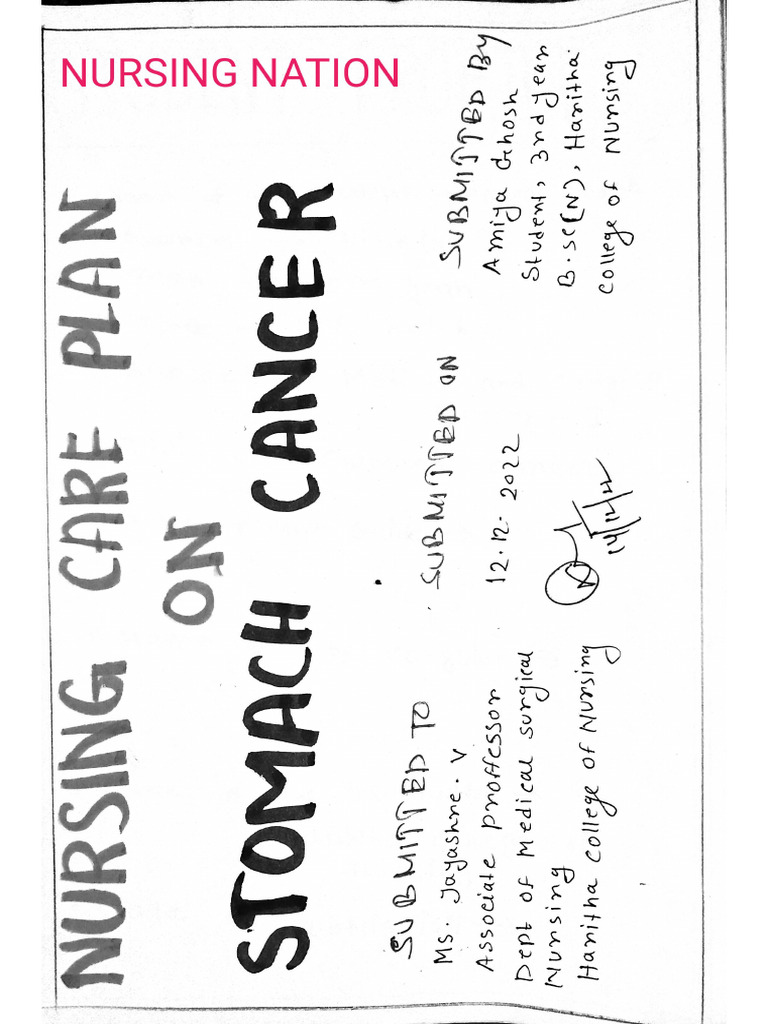 NURSING NATION
NURSING CARE PLAN
ON
STOMACH CANCER
SUBMITTED TO
Ms. Jayashree. V
Associate proffessor
Dept of Medical surgical
Nursing
Haritha college of Nursing
SUBMITTED ON
12.12.2022
14/12/22
SUBMITTED By
Amiya Ghosh
Student, 3rd year
B.sc(N), Haritha
college of Nursing